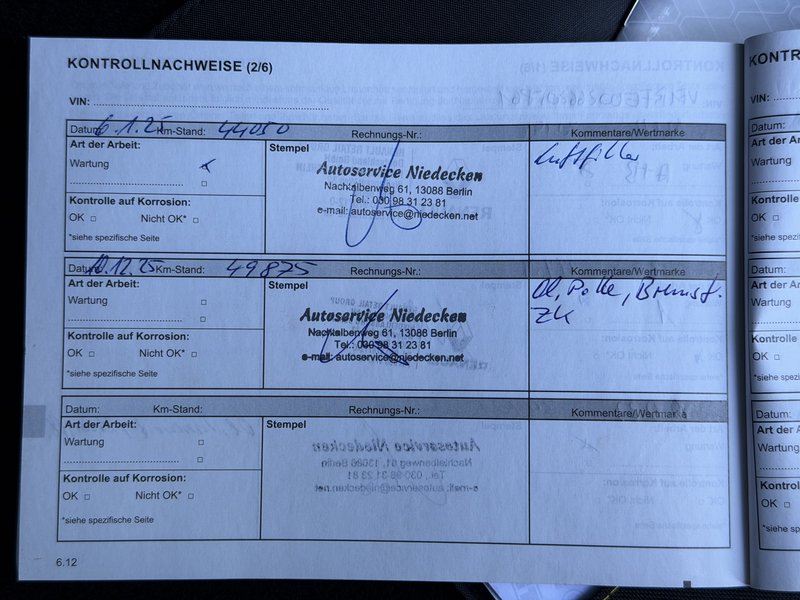 KONTROLLNACHWEISE (2/6)
VIN:
Datum: 6.1.25 Km-Stand: 44050 Rechnungs-Nr.: Kommentare/Wertmarke
Art der Arbeit:
Wartung
Stempel
Autoservice Niedecken
Nachtalbenweg 61, 13088 Berlin
Tel.: 030 98 31 23 81
e-mail: autoservice@niedecken.net
Luftfilter
Kontrolle auf Korrosion:
OK Nicht OK*
*siehe spezifische Seite
Datum: 12.25 Km-Stand: 49875 Rechnungs-Nr.: Kommentare/Wertmarke
Art der Arbeit:
Wartung
Stempel
Autoservice Niedecken
Nachtalbenweg 61, 13088 Berlin
Tel.: 030 98 31 23 81
e-mail: autoservice@niedecken.net
Öl, Polle, Bremsf.
ZK
Kontrolle auf Korrosion:
OK Nicht OK*
*siehe spezifische Seite
Datum: Km-Stand: Rechnungs-Nr.: Kommentare/Wertmarke
Art der Arbeit:
Wartung
Stempel
Kontrolle auf Korrosion:
OK Nicht OK*
*siehe spezifische Seite
6.12
KONTR
VIN:
Datum:
Art der Arb
Wartung
Kontrolle
OK
*siehe spezifi
Datum:
Art der Arb
Wartung
Kontrolle
OK
*siehe spezif
Datum:
Art der A
Wartung
Kontrol
OK
*siehe spez